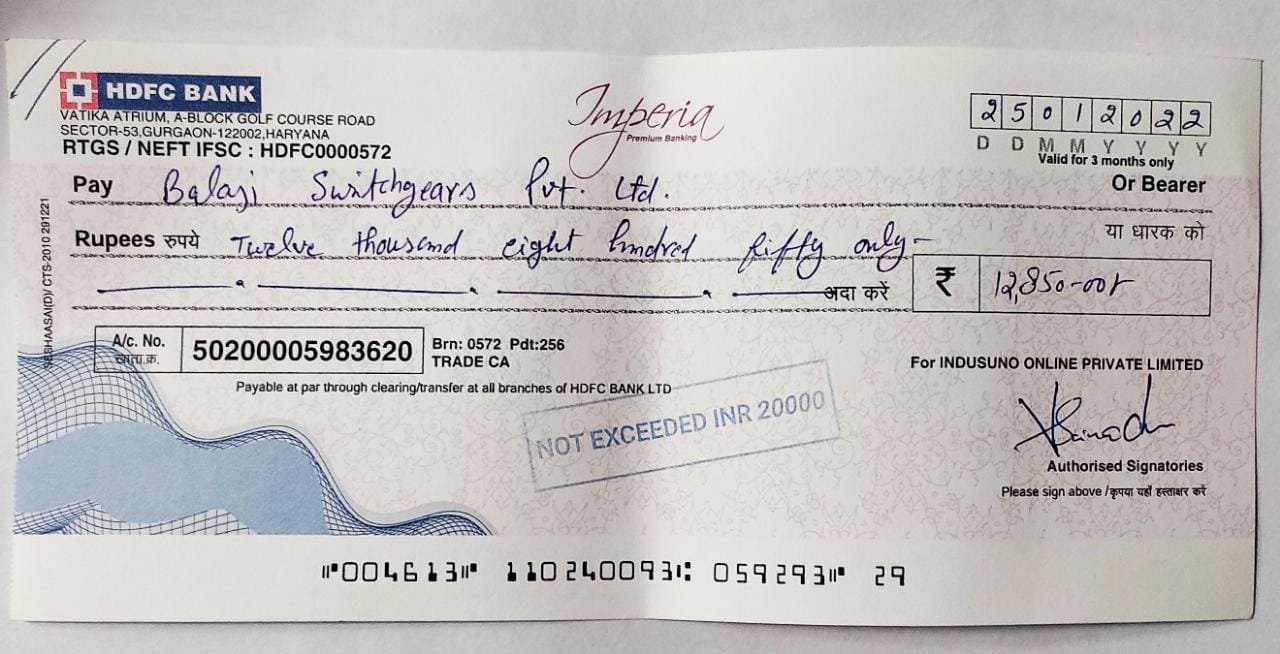 HDFC BANK
VATIKA ATRIUM, A-BLOCK GOLF COURSE ROAD
SECTOR-53,GURGAON-122002,HARYANA
RTGS / NEFT IFSC : HDFC0000572
Imperia
Premium Banking
2 5 0 1 2 0 2 2
D D M M Y Y Y Y
Valid for 3 months only
Pay Balaji Switchgears Pvt. Ltd. Or Bearer
Rupees रुपये Twelve thousand eight hundred fifty only- या धारक को
अदा करें ₹ 12,850-00
A/c. No. 50200005983620 Brn: 0572 Pdt:256
खाता.क्र. TRADE CA
Payable at par through clearing/transfer at all branches of HDFC BANK LTD
For INDUSUNO ONLINE PRIVATE LIMITED
NOT EXCEEDED INR 20000
Authorised Signatories
Please sign above /कृपया यहाँ हस्ताक्षर करें
CTS-2010 291221
⑈004613⑈ 110240093⑆ 059293⑈ 29